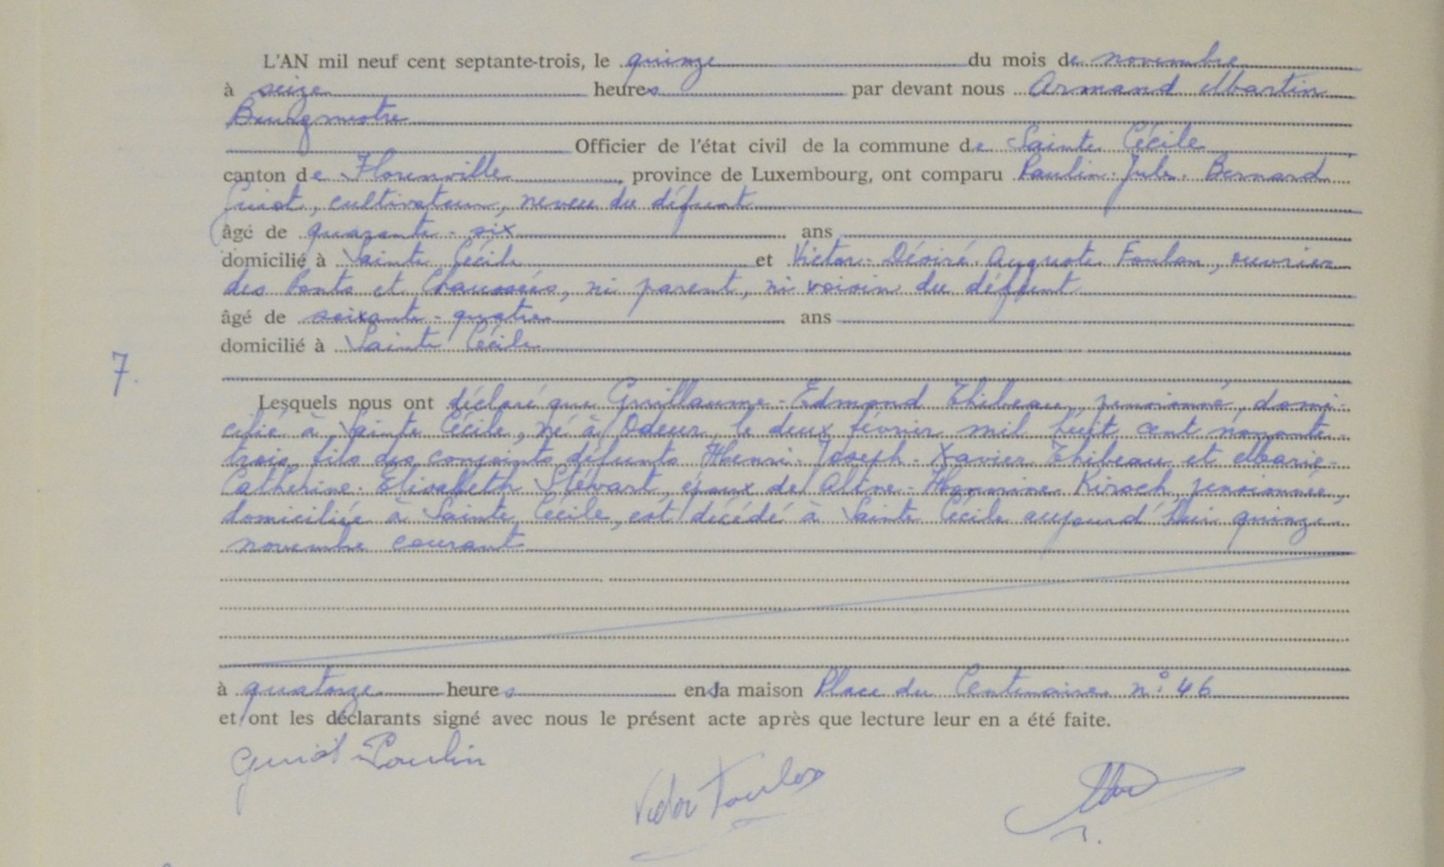 L'AN mil neuf cent septante-trois, le quinze du mois de novembre
à seize heures par devant nous Armand Martin
Bourgmestre
Officier de l'état civil de la commune de Sainte Cécile
canton de Florenville, province de Luxembourg, ont comparu Paulin-Jules-Bernard
Guiot, cultivateur, neveu du défunt
âgé de quarante-six ans
domicilié à Sainte Cécile et Victor-Désiré-Auguste Foulon, ouvrier
des Ponts et Chaussées, ni parent, ni voisin du défunt
âgé de soixante-quatre ans
domicilié à Sainte Cécile
7.
Lesquels nous ont déclaré que Guillaume-Edmond Thibeau, pensionné, domi-
cilié à Sainte Cécile, né à Odeur, le deux février mil huit cent nonante-
trois, fils des conjoints défunts Henri-Joseph-Xavier Thibeau et Marie-
Catherine-Elisabeth Stévart, époux de Aline-Hermine Kirsch, pensionnée,
domiciliée à Sainte Cécile, est décédé à Sainte Cécile aujourd'hui quinze
novembre courant
à quatorze heures en sa maison Place du Centenaire n° 46
et ont les déclarants signé avec nous le présent acte après que lecture leur en a été faite.
Guiot Paulin
Victor Foulon